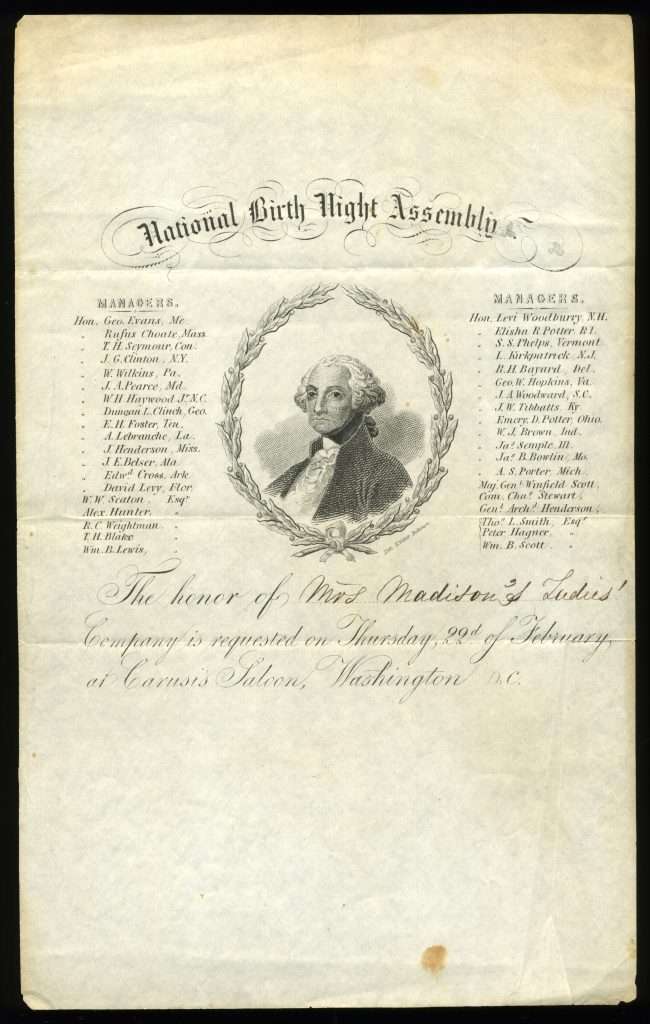 National Birth Night Assembly.
MANAGERS,
Hon. Geo. Evans, Me.
„ Rufus Choate, Mass
„ T. H. Seymour, Con.
„ J. G. Clinton, N.Y.
„ W. Wilkins, Pa.
„ J. A. Pearce, Md.
„ W. H. Haywood Jr. N.C.
„ Duncan L. Clinch, Geo.
„ E. H. Foster, Ten.
„ A. Lebranche, La.
„ J. Henderson, Miss.
„ J. E. Belser, Ala.
„ Edwd. Cross, Ark.
„ David Levy, Flor.
W. W. Seaton, Esqr.
Alex Hunter, „
R. C. Weightman, „
T. H. Blake „
Wm. B. Lewis, „
MANAGERS,
Hon. Levi Woodburry, N.H.
„ Elisha R. Potter, R.I.
„ S. S. Phelps, Vermont
„ L. Kirkpatrick, N.J.
„ R. H. Bayard, Del.
„ Geo. W. Hopkins, Va.
„ J. A. Woodward, S.C.
„ J. W. Tibbatts, Ky.
„ Emery. D. Potter, Ohio.
„ W. J. Brown, Ind.
„ Jas. Semple, Ill.
„ Jas. B. Bowlin, Mo.
„ A. S. Porter, Mich.
Maj. Genl. Winfield Scott,
Com. Chas. Stewart,
Genl. Archd. Henderson,
Thos. L. Smith, Esqr.
Peter Hagner, „
Wm. B. Scott. „
The honor of Mrs Madison's & Ladies'
Company is requested on Thursday, 22d of February,
at Carusi's Saloon, Washington D.C.